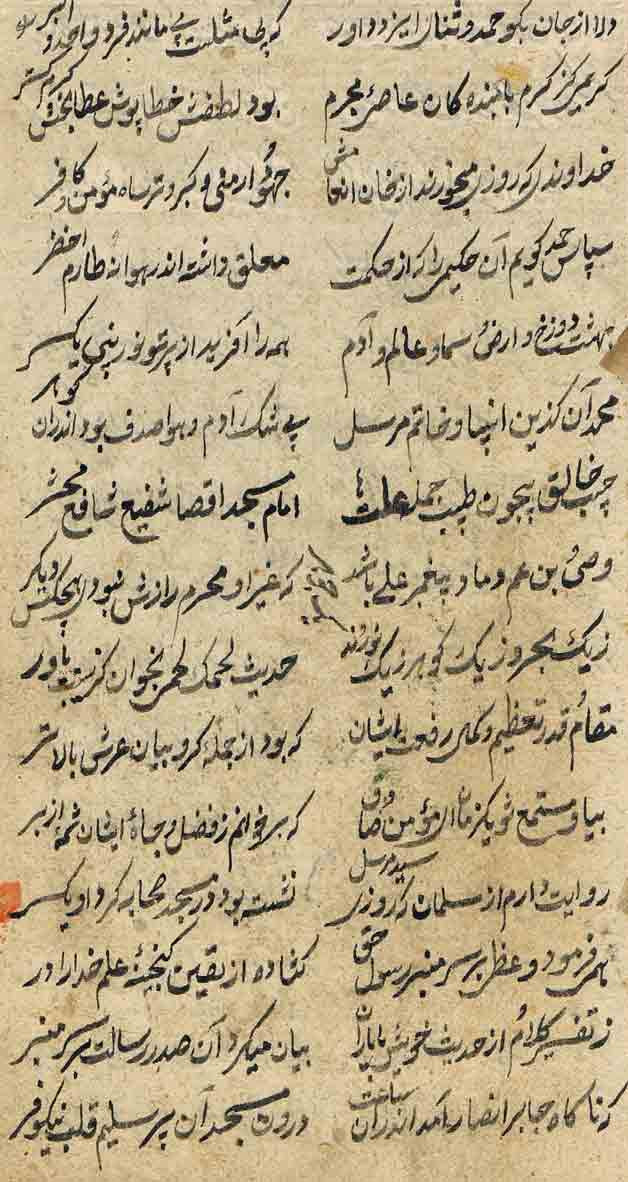 دلا از جان بکو حمد و ثنای ایزد داور که بی مثلست بی مانند فرد و واحد و اکبر
کریمی کز کرم با بنده کان عاصی مجرم بود لطفش خطاپوش عطابخش کرم کستر
خداوندی که روزی میخورند از خان انعامش جهود و ارمنی و کبر و ترسا مؤمن و کافر
سپاس حمد کویم آن حکیمی را که از حکمت معلق داشته اندر هوا نه طارم اخضر
بهشت دوزخ و ارض و سما و عالم و آدم همه را آفرید از پرتو نور نبی یکسر
محمد آن کزین انبیا و خاتم مرسل بی شک آدم و هوا صدف بود اندران کوهر
حبیب خالق بیچون طبیب جمله علتها امام مسجد اقصا شفیع شافع محشر
وصی و بن عم و داماد پیغمبر علی باشد که غیر او محرم رازش نبودی هیچکس دیکر
زیک بحر و زیک کوهر زیک نورند حدیث لحمک لحمی بخوان کر نیست باور
مقام و قدر تعظیم و کمال رفعت ایشان که بود از جمله کروبیان عرش بالاتر
بیا و مستمع شو یکزمان ای مؤمن صادق که برخوانم ز فضل و جاه ایشان شمه از بر
روایت دارم از سلمان که روزی سید مرسل نشسته بود در مسجد صحابه کرد او یکسر
همی فرمود وعظ بر سر منبر رسول حق کشاده از یقین کنجینه علم خدا را در
ز تفسیر کلام و از حدیث خویش با یاران بیان میکرد آن صدر رسالت بر سر منبر
که ناکاه جابر انصار آمد اندران ساعت درون مسجد آن پر سلیم قلب نیکوفر